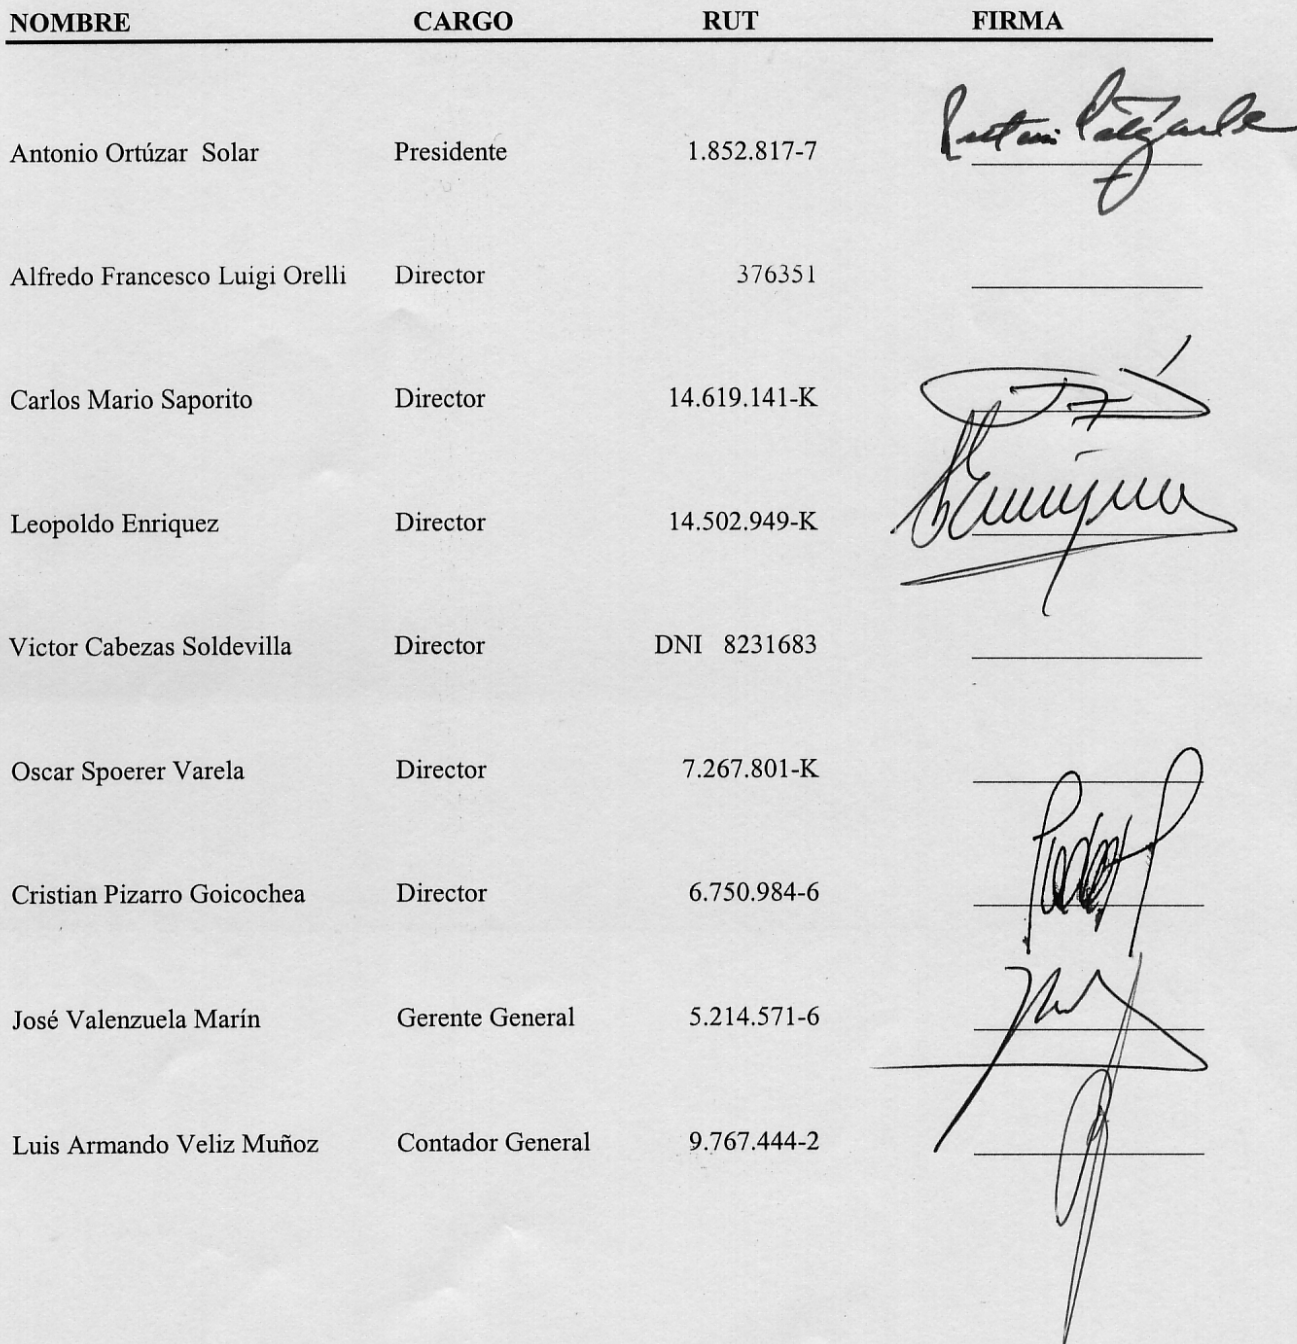 NOMBRE CARGO RUT FIRMA
Antonio Ortúzar Solar Presidente 1.852.817-7
Alfredo Francesco Luigi Orelli Director 376351
Carlos Mario Saporito Director 14.619.141-K
Leopoldo Enriquez Director 14.502.949-K
Victor Cabezas Soldevilla Director DNI 8231683
Oscar Spoerer Varela Director 7.267.801-K
Cristian Pizarro Goicochea Director 6.750.984-6
José Valenzuela Marín Gerente General 5.214.571-6
Luis Armando Veliz Muñoz Contador General 9.767.444-2